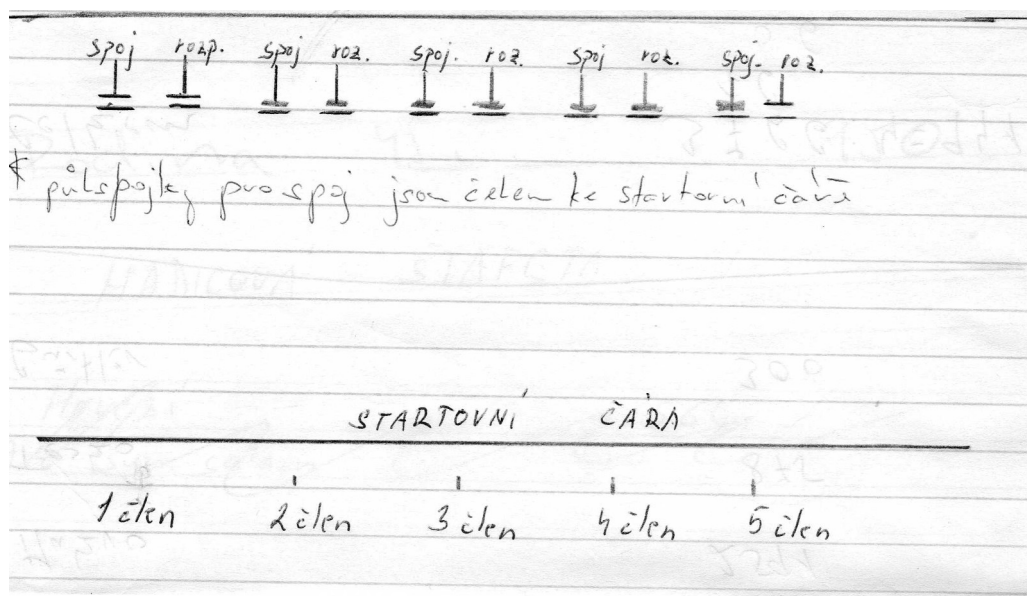 spoj rozp. spoj roz. spoj. roz. spoj roz. spoj. roz.
půlspojky pro spoj jsou čelem ke startovní čáře
STARTOVNÍ ČÁRA
1 člen 2 člen 3 člen 4 člen 5 člen